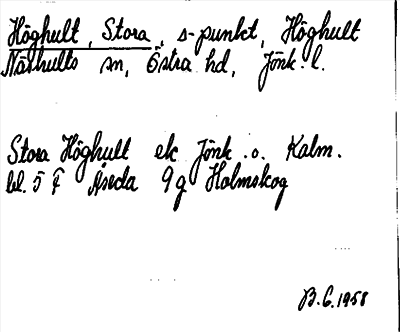 Höghult, Stora, s-punkt, Höghult
Näshults sn, Östra hd, Jönk. l.
Stora Höghult ek Jönk. o. Kalm.
bl. 5 F Åseda 9g Holmskog
B.G. 1958